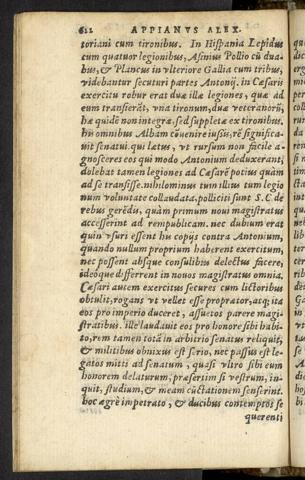 622 APPIANVS ALEX.
toriani cum tironibus. In Hispania Lepidus
cum quatuor legionibus, Asinius Pollio cū dua-
bus, & Plancus in vlteriore Gallia cum tribus,
videbantur secuturi partes Antonij. in Cæsaris
exercitu robur erat duæ illæ legiones, quæ ad
eum transierāt, vna tironum, duæ veteranorū,
hæ quidē non integræ, sed suppletæ ex tironibus.
his omnibus Albam cōuenire iussis, rē significa-
uit senatui. qui lætus, vt rursum non facile a-
gnosceres eos qui modo Antonium deduxerant,
dolebat tamen legiones ad Cæsarē potius quàm
ad se transisse. nihilominus tum illius tum legio
num voluntate collaudata, polliciti sunt S.C. de
rebus gerēdis, quàm primum noui magistratus
accesserint ad rempublicam. nec dubium erat
quin vsuri essent his copijs contra Antonium,
quando nullum proprium haberent exercitum,
nec possent absque consulibus delectus facere,
ideóque differrent in nouos magistratus omnia.
Cæsari autem exercitus secures cum lictoribus
obtulit, rogans vt vellet esse proprætor, atq; ita
eos pro imperio duceret, assuetos parere magi-
stratibus. ille laudauit eos pro honore sibi habi-
to, rem tamen totā in arbitrio senatus reliquit,
& militibus obnixus est serio, nec passus est le-
gatos mitti ad senatum, quasi vltro sibi eum
honorem delaturum, præsertim si vestrum, in-
quit, studium, & meam cūctationem senserint.
hoc ægrè impetrato, & ducibus contemptos se
querenti